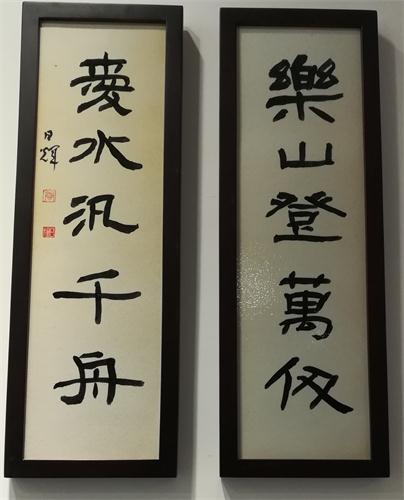 樂山登萬仞
愛水汎千舟
日輝